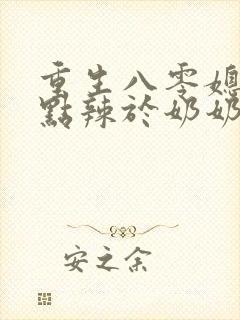 重生八零媳
點辣於奶奶
安之余